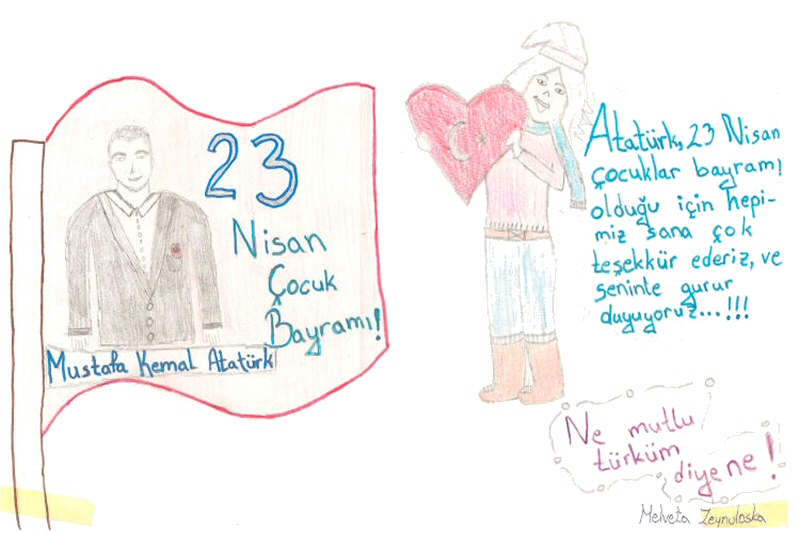 23
Nisan
Çocuk
Bayramı!
Mustafa Kemal Atatürk
Atatürk, 23 Nisan
çocuklar bayramı
olduğu için hepi-
miz sana çok
teşekkür ederiz, ve
seninle gurur
duyuyoruz...!!!
Ne mutlu
türküm
diyene!
Melveta Zeynuloska